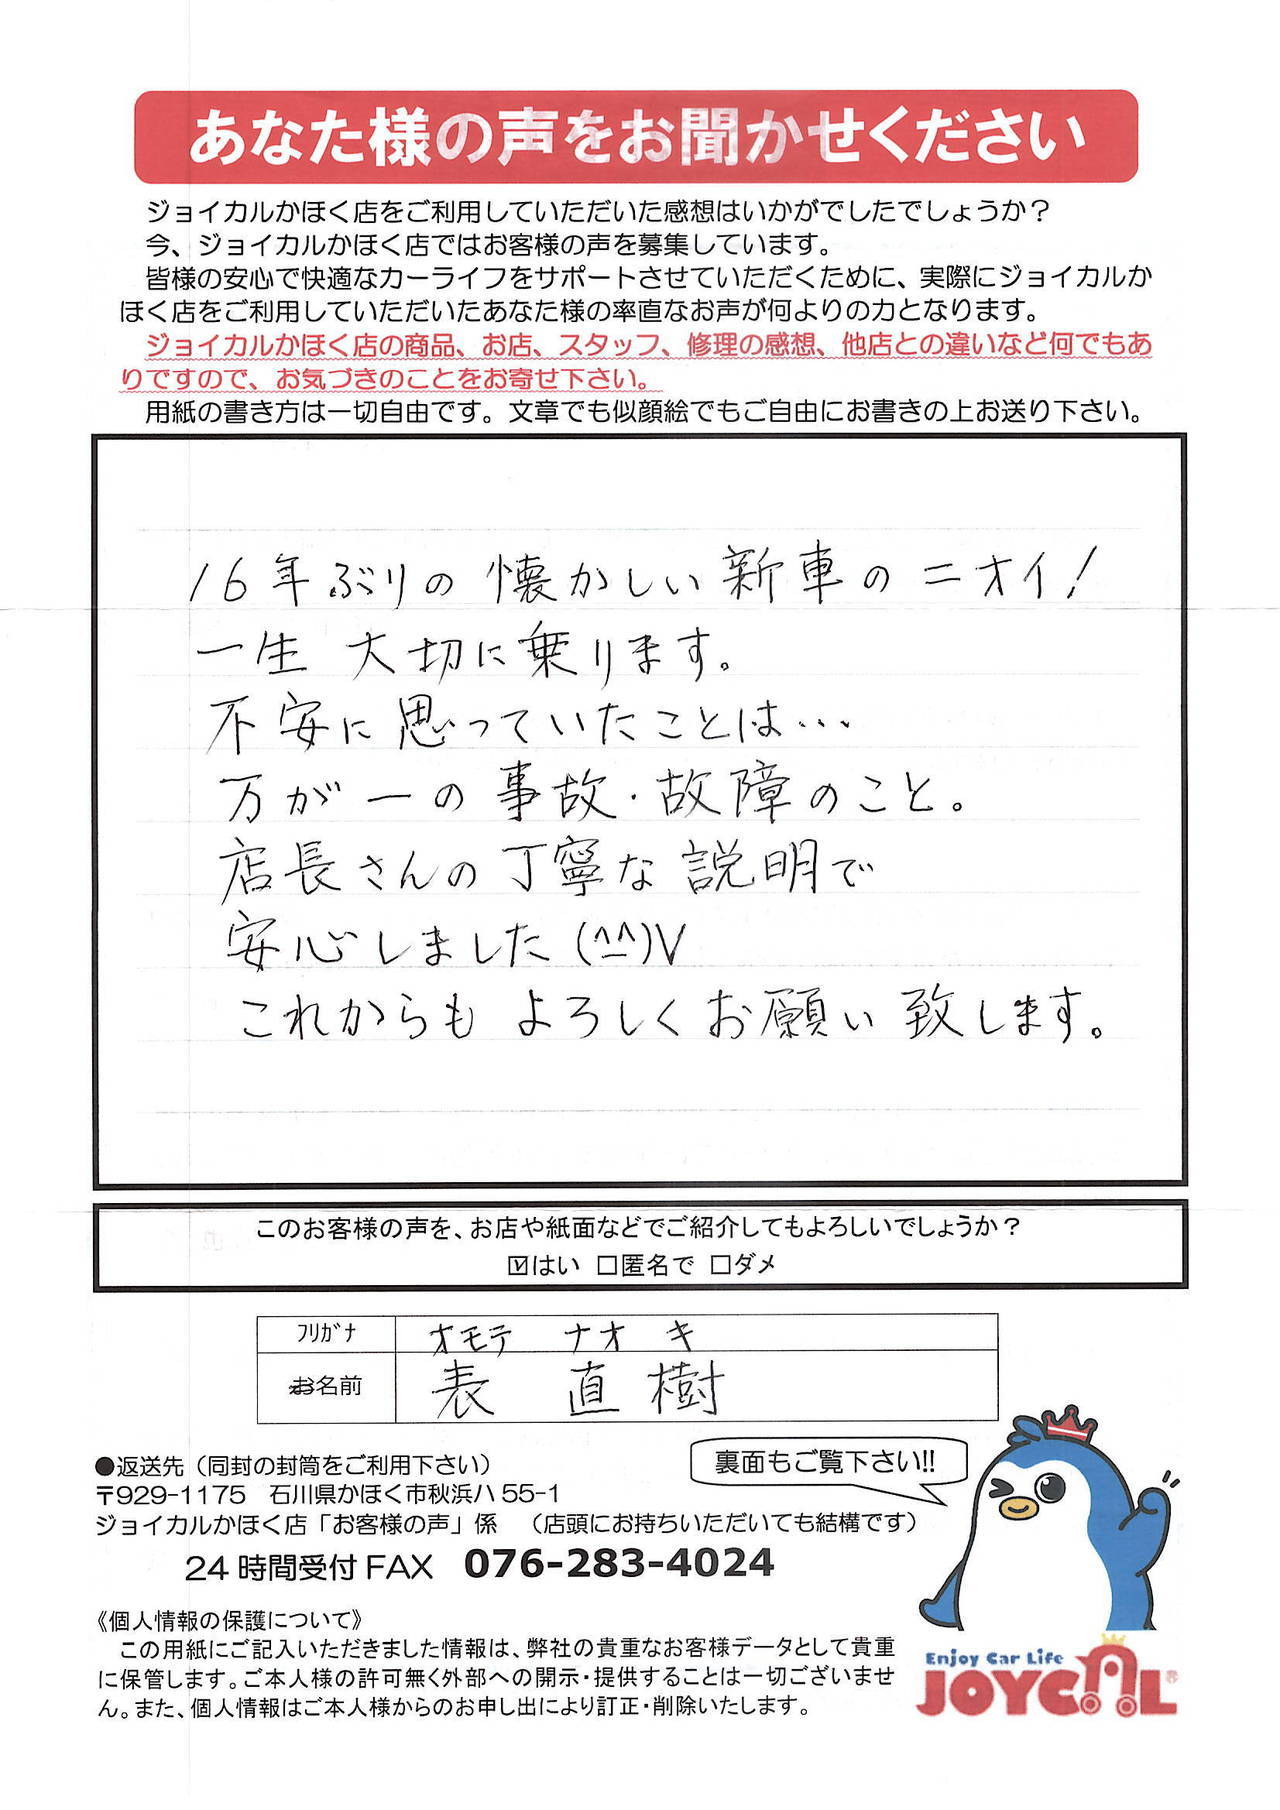 あなた様の声をお聞かせください
ジョイカルかほく店をご利用していただいた感想はいかがでしたでしょうか？
今、ジョイカルかほく店ではお客様の声を募集しています。
皆様の安心で快適なカーライフをサポートさせていただくために、実際にジョイカルか
ほく店をご利用していただいたあなた様の率直なお声が何よりの力となります。
ジョイカルかほく店の商品、お店、スタッフ、修理の感想、他店との違いなど何でもあ
りですので、お気づきのことをお寄せ下さい。
用紙の書き方は一切自由です。文章でも似顔絵でもご自由にお書きの上お送り下さい。
16年ぶりの懐かしい新車のニオイ!
一生 大切に乗ります。
不安に思っていたことは…
万が一の事故・故障のこと。
店長さんの丁寧な説明で
安心しました(^^)V
これからも よろしくお願い致します。
このお客様の声を、お店や紙面などでご紹介してもよろしいでしょうか？
☑はい □匿名で □ダメ
フリガナ オモテ ナオキ
お名前 表 直樹
裏面もご覧下さい!!
●返送先（同封の封筒をご利用下さい）
〒929-1175 石川県かほく市秋浜ハ55-1
ジョイカルかほく店「お客様の声」係 （店頭にお持ちいただいても結構です）
24時間受付FAX 076-283-4024
《個人情報の保護について》
この用紙にご記入いただきました情報は、弊社の貴重なお客様データとして貴重
に保管します。ご本人様の許可無く外部への開示・提供することは一切ございませ
ん。また、個人情報はご本人様からのお申し出により訂正・削除いたします。
Enjoy Car Life
JOYCAL®